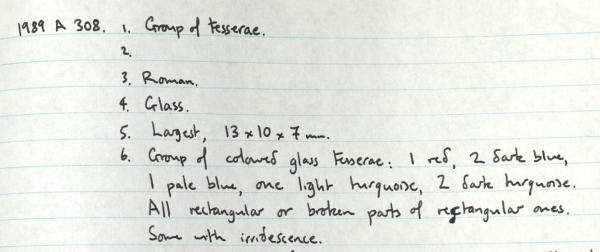 1989 A 308. 1. Group of tesserae.
2.
3. Roman.
4. Glass.
5. Largest, 13 x 10 x 7 mm.
6. Group of coloured glass tesserae: 1 red, 2 dark blue,
1 pale blue, one light turquoise, 2 dark turquoise.
All rectangular or broken parts of rectangular ones.
Some with irridescence.